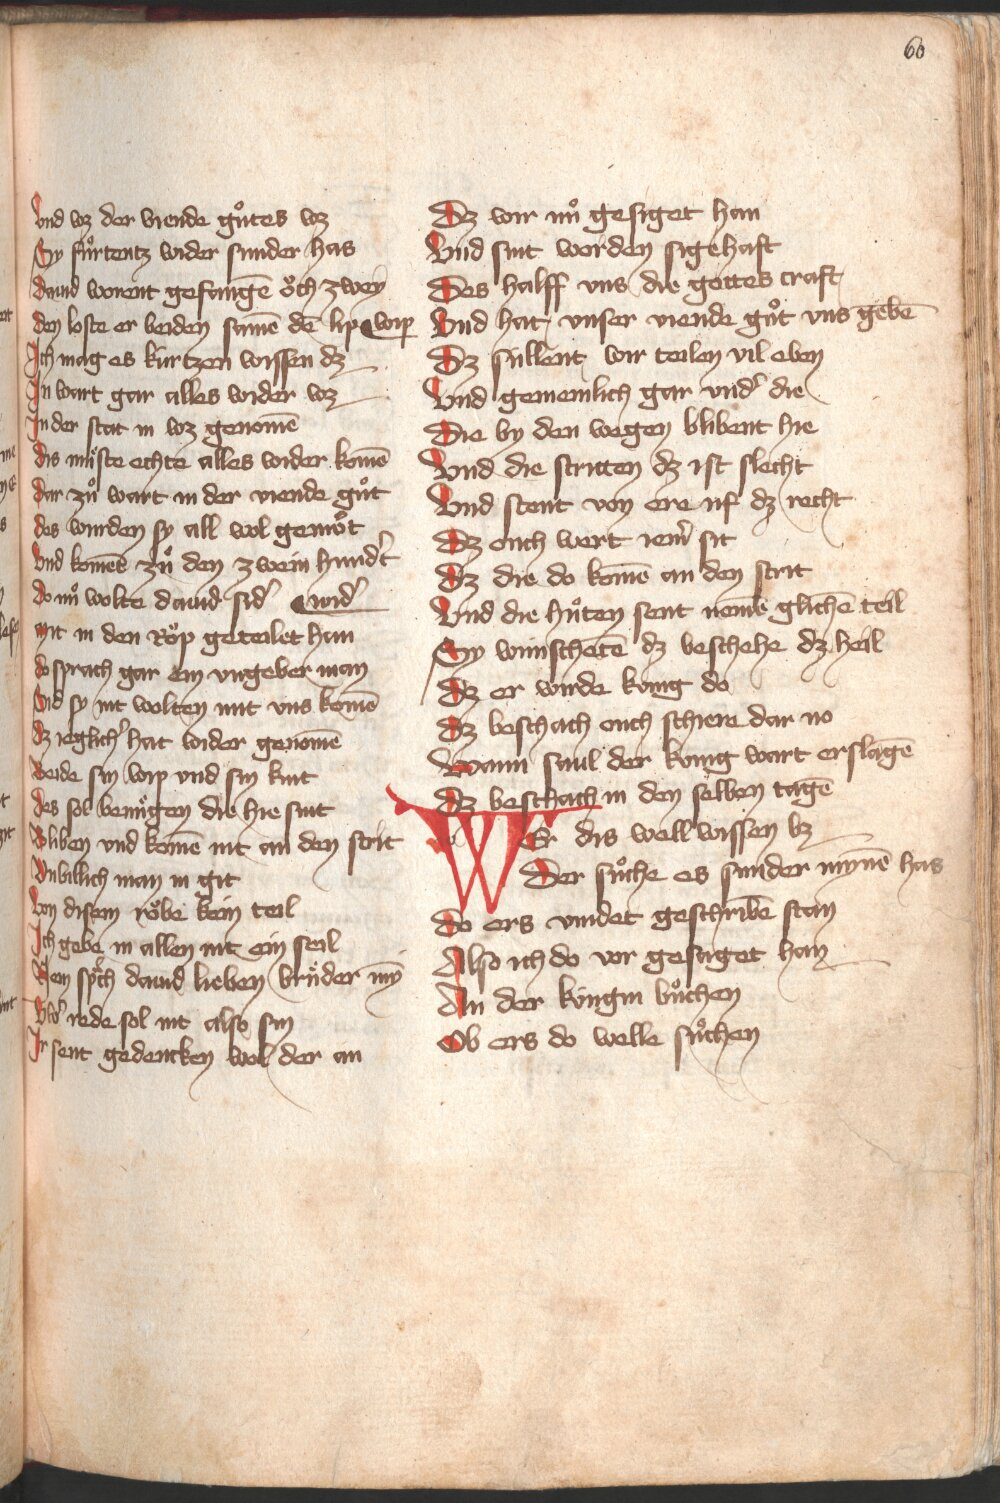 60
Vnd wz der viende gůtes wz
Sy fůrtentz wider sunder has
Dauid worent gefangē ŏch zwey
den loste er beiden samē dē lip wip
Ich mag es kúrtzen wissen dz
In wart gar alles wider wz
In der stat in wz genomē
dis můste echte alles wider komē
dar zů wart in der viende gůt
des wurden sy all wol gemůt
Vnd komēs zů den zwein hundt
do nů wolte dauid sid wid
nit in den Rŏp geteilet han
do sprach gar ein vngeber man
Sid sy nit wolten mit vns komē
dz ieglich hat wider genomē
Beide sin wip vnd sin kint
des sol benúgen die hie sint
Bliben vnd komē nit an den strit
Vnbillich man in git
Von disem rŏbe kein teil
Ich gebe in allen nit ein seil
Nein spch dauid lieben brůder mÿ
Vwer rede sol nit also sin
Ir sent gedencken wol der an
Dz wir nů gesiget han
Vnd sint worden sigehaft
Des halff vns die gottes craft
Vnd hat vnser viende gůt vns gebē
Dz súllent wir teilen vil eben
Vnd gemeinlich gar vnd die
Die by den wegen blibent hie
Vnd die stritten dz ist slecht
Vnd stent von ere uf dz recht
Dz ouch wert iem sit
Dz die do komē an den strit
Vnd die hůten sent nemē glichē teil
Sy wunschetē dz beschehe dz heil
Dz er wurde kúnig do
Dz beschach ouch schiere dar no
Wann saul der kúnig wart erslagē
Dz beschach in den selben tagē
WEr dis well wissen bz
Der sůche es sunder mynē has
Do ers vindet geschribē stan
Also ich do vor gesaget han
An der kúngin bůchen
Ob ers do welle sůchen